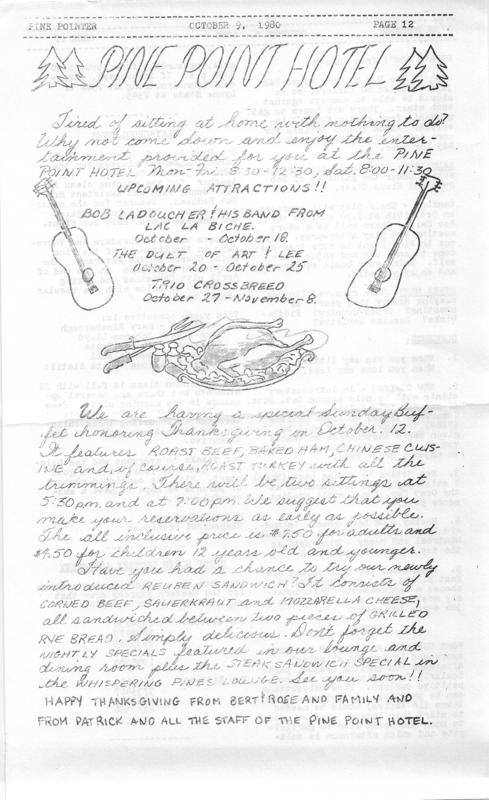 PINE POINTER OCTOBER 9, 1980 PAGE 12
PINE POINT HOTEL
Tired of sitting at home with nothing to do?
Why not come down and enjoy the enter-
tainment provided for you at the PINE
POINT HOTEL Mon-Fri. 8:30-12:30, Sat. 8:00-11:30
UPCOMING ATTRACTIONS!!
BOB LADOUCHER & HIS BAND FROM
LAC LA BICHE.
October - October 18.
THE DUET OF ART & LEE
October 20 - October 25
T.910 CROSSBREED
October 27 - November 8.
We are having a special Sunday Buf-
fet honoring Thanksgiving on October. 12.
It features ROAST BEEF, BAKED HAM, CHINESE CUIS-
INE and, of course, ROAST TURKEY with all the
trimmings. There will be two sittings at
5:30 p.m. and at 7:00 p.m. We suggest that you
make your reservations as early as possible.
The all inclusive price is $7.50 for adults and
$4.50 for children 12 years old and younger.
Have you had a chance to try our newly
introduced REUBEN SANDWICH? It consists of
CORNED BEEF, SAUERKRAUT and MOZZARELLA CHEESE,
all sandwiched between two pieces of GRILLED
RYE BREAD. Simply delicious. Dont forget the
NIGHTLY SPECIALS featured in our lounge and
dining room plus the STEAK SANDWICH SPECIAL in
the WHISPERING PINES LOUNGE. See you soon!!
HAPPY THANKSGIVING FROM BERT & ROSE AND FAMILY AND
FROM PATRICK AND ALL THE STAFF OF THE PINE POINT HOTEL.